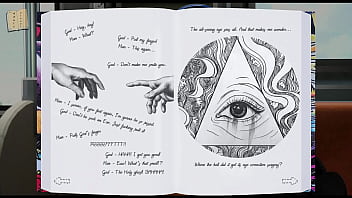 God - Hey, hey!
Man - What?
God - Pull my finger!
Man - Tho again...
God - Don't make me smite you.
Man - I swear, if you fart again, I'm gonna be so pissed.
God - Don't be such an Eve. Just fucking pull it.
Man - Pulls God's finger.
PFFFFFTTTTTT!
God - AHAHA! I got you good!
Man - Eww! What's that smell?
God - The Holy ghost! AHAHAHA!
The all-seeing eye sees all. And that makes me wonder...
Where the hell did it get its eye correction surgery?